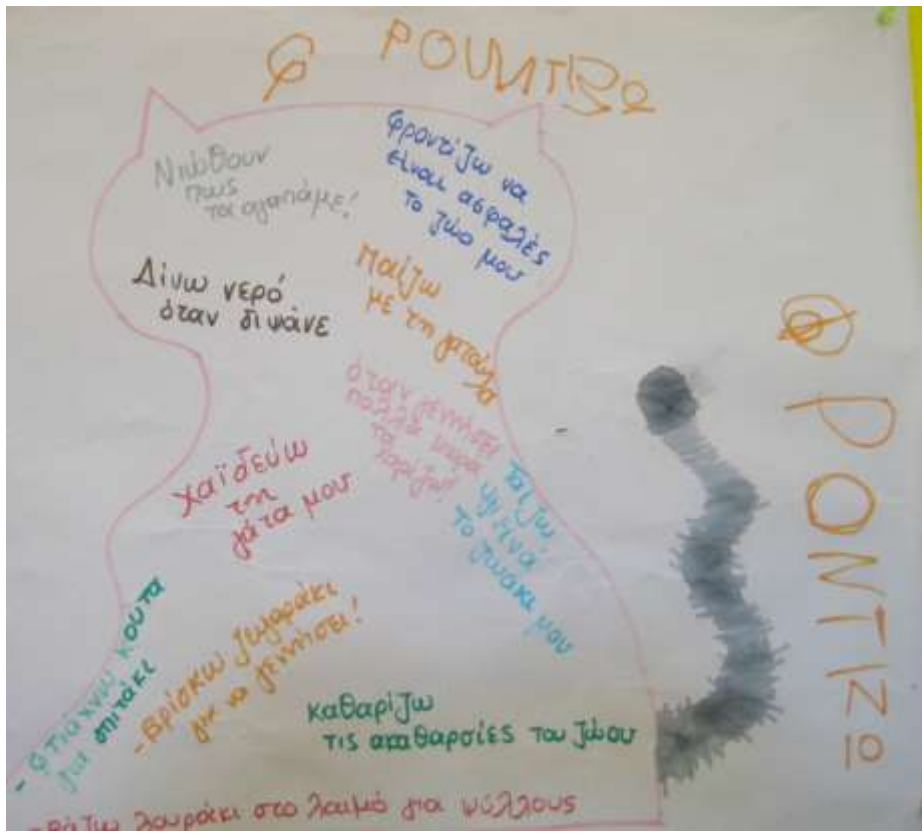 Φ ΡΟΥΝΤΙΖΩ
Νιώθουν
πως
τα αγαπάμε!
φροντίζω να
είναι ασφαλές
το ζώο μου
Δίνω νερό
όταν διψάνε
Παίζω
με τη γατούλα
όταν γεννήσει
πολλά μικρά
τα
χαϊδεύω
τη
γάτα μου
ταΐζω
το ζωάκι μου
- φτιάχνω κουτα
για σπιτάκι
- βρίσκω ζευγαράκι
για να γεννήσει!
καθαρίζω
τις ακαθαρσίες του ζώου
- βάζω λουράκι στο λαιμό για ψύλλους
Φ ΡΟΝΤΙΖΩ